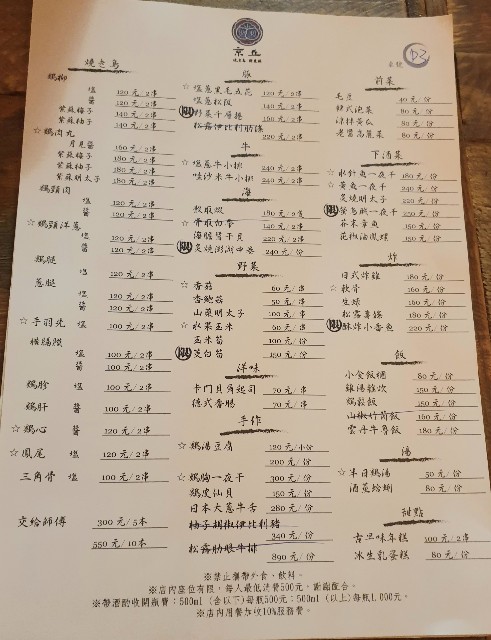 京丘
桌號 D2
燒き鳥
雞柳
塩 120元/2串
醬 120元/2串
紫蘇梅子 140元/2串
紫蘇柚子 140元/2串
☆雞肉丸
月見醬 160元/2串
紫蘇梅子 180元/2串
紫蘇柚子 180元/2串
紫蘇明太子 180元/2串
雞頸肉
塩 120元/2串
醬 120元/2串
☆雞頸洋蔥
塩 120元/2串
醬 120元/2串
雞腿
塩 120元/2串
蔥腿
塩 120元/2串
醬 120元/2串
☆手羽先 塩 100元/2串
橫膈膜
塩 100元/2串
醬 100元/2串
雞胗 塩 100元/2串
雞肝 醬 100元/2串
☆雞心 醬 120元/2串
☆鳳尾 塩 120元/2串
三角骨 塩 100元/2串
交給師傅 300元/5本
550元/10本
豚
☆塩蔥黑毛五花 120元/2串
塩蔥松阪
限 野菜千層捲 160元/2串
松露伊比利肋條 220元/2串
牛
☆塩蔥牛小排 240元/2串
味沙米牛小排 240元/2串
海
180元/2隻
☆ 140元/2串
海膽醬干貝 220元/2串
限 炙燒澎湖中卷 240元/份
野菜
☆香菇 60元/串
香鮑菇 50元/串
山藥明太子 100元/串
☆水果玉米 60元/串
玉米筍 100元/份
限 茭白筍 150元/份
洋味
卡門貝角起司 70元/串
德式香腸 70元/串
手作
☆雞湯豆腐 120元/小份
200元/份
☆雞胸一夜干 300元/份
雞皮仙貝 150元/份
日本大蔥牛舌 280元/份
柚子胡椒伊比利豬 340元/份
松露肋眼牛排 890元/份
前菜
毛豆 40元/份
韓式泡菜 80元/份
涼拌黃瓜 80元/份
老醋高麗菜 80元/份
下酒菜
☆水針魚一夜干 180元/份
☆黃魚一夜干 240元/份
炙燒明太子 220元/份
限 螢烏賊一夜干 150元/份
芥末章魚 150元/份
花椒油鳳螺 150元/份
炸
日式炸雞 180元/份
☆軟骨 160元/份
生蠔 160元/份
松露薯條 180元/份
限 酥炸小香魚 220元/份
飯
小食飯糰 80元/份
雞湯雜炊 150元/份
雞鬆飯 150元/份
山椒竹筍飯 160元/份
雲丹牛魯飯 180元/份
湯
☆半日雞湯 50元/份
酒蒸蛤蜊 80元/份
甜點
古早味年糕 100元/份
冰生乳蛋糕 80元/份
※禁止攜帶外食、飲料。
※店內座位有限，每人最低消費500元，謝謝配合。
※帶酒酌收開瓶費：500ml (含以下)每瓶500元；500ml (以上)每瓶1,000元。
※店內用餐加收10%服務費。